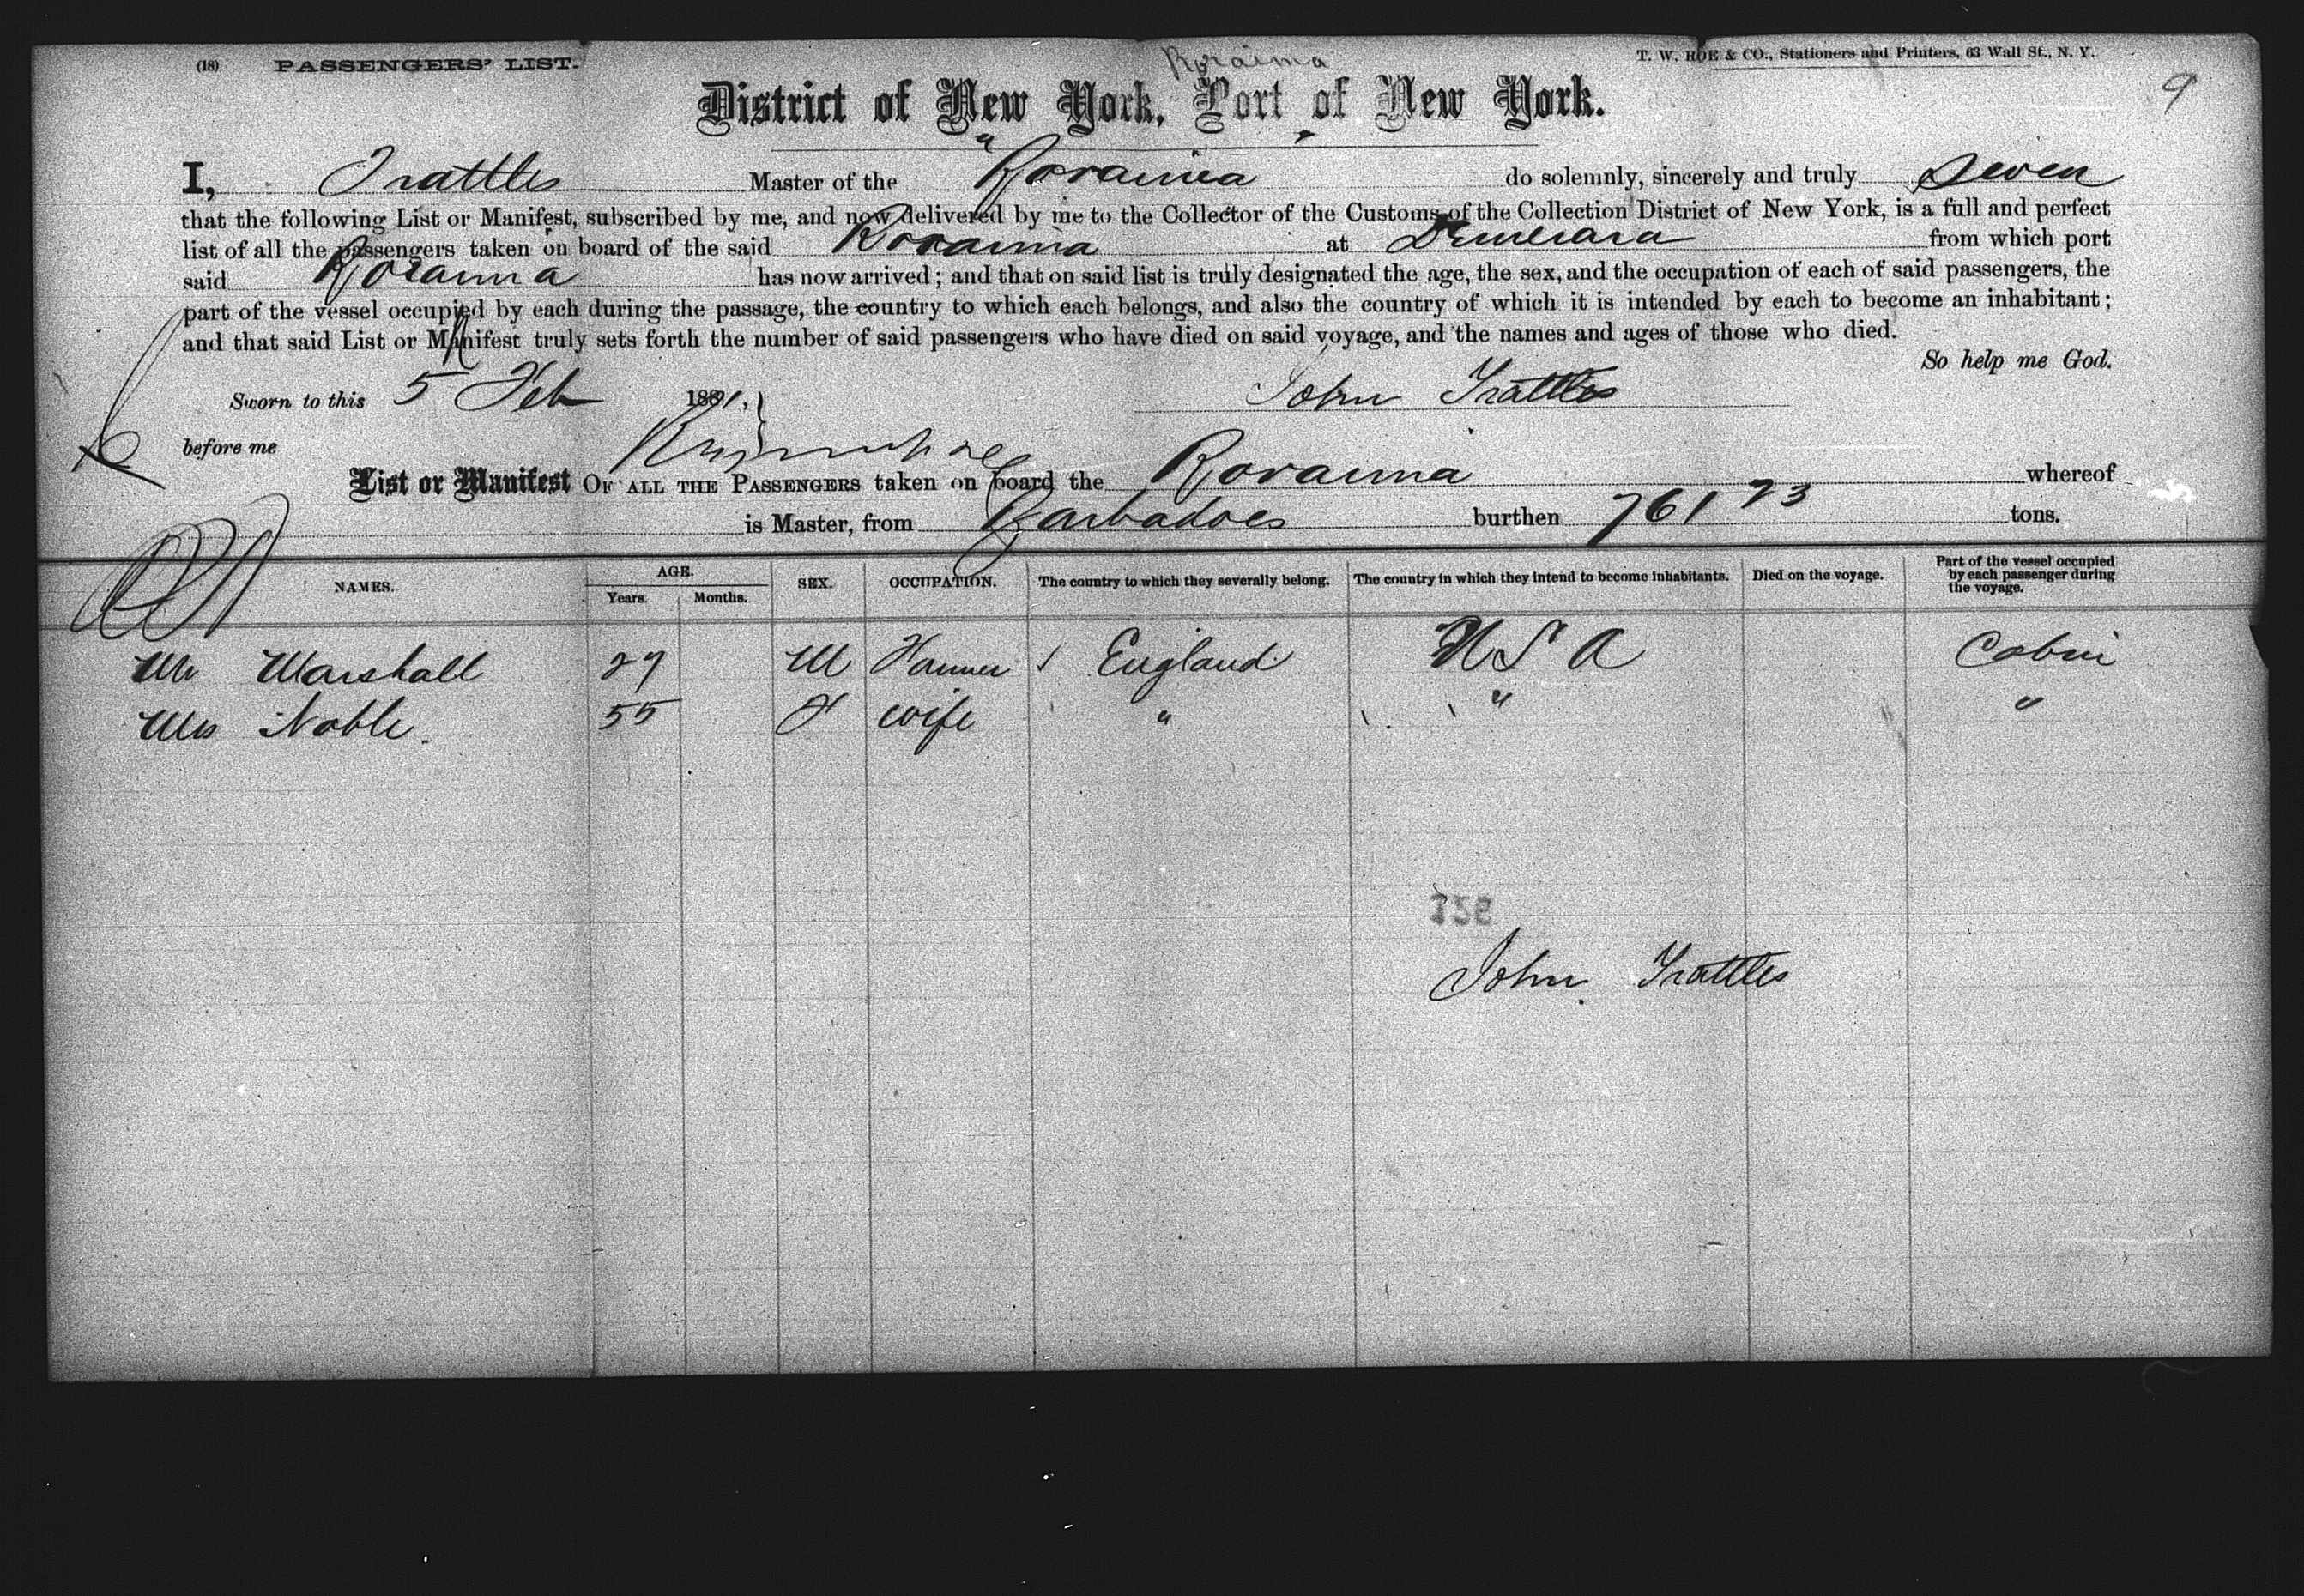 Roraima
(18) PASSENGERS' LIST. T. W. ROE & CO., Stationers and Printers, 63 Wall St., N. Y.
9
District of New York, Port of New York.
I, Trattles Master of the "Roraima" do solemnly, sincerely and truly
that the following List or Manifest, subscribed by me, and now delivered by me to the Collector of the Customs of the Collection District of New York, is a full and perfect
list of all the passengers taken on board of the said Roraima at Demerara from which port
said Roraima has now arrived; and that on said list is truly designated the age, the sex, and the occupation of each of said passengers, the
part of the vessel occupied by each during the passage, the country to which each belongs, and also the country of which it is intended by each to become an inhabitant;
and that said List or Manifest truly sets forth the number of said passengers who have died on said voyage, and the names and ages of those who died.
So help me God.
Sworn to this 5 Feb 1891, John Trattles
before me
List or Manifest OF ALL THE PASSENGERS taken on board the Roraima whereof
is Master, from Barbadoes burthen 761 73 tons.
NAMES. AGE. Years. Months. SEX. OCCUPATION. The country to which they severally belong. The country in which they intend to become inhabitants. Died on the voyage. Part of the vessel occupied by each passenger during the voyage.
Mr Marshall 27 M England U S A Cabin
Mrs Noble. 55 F wife " " "
John Trattles